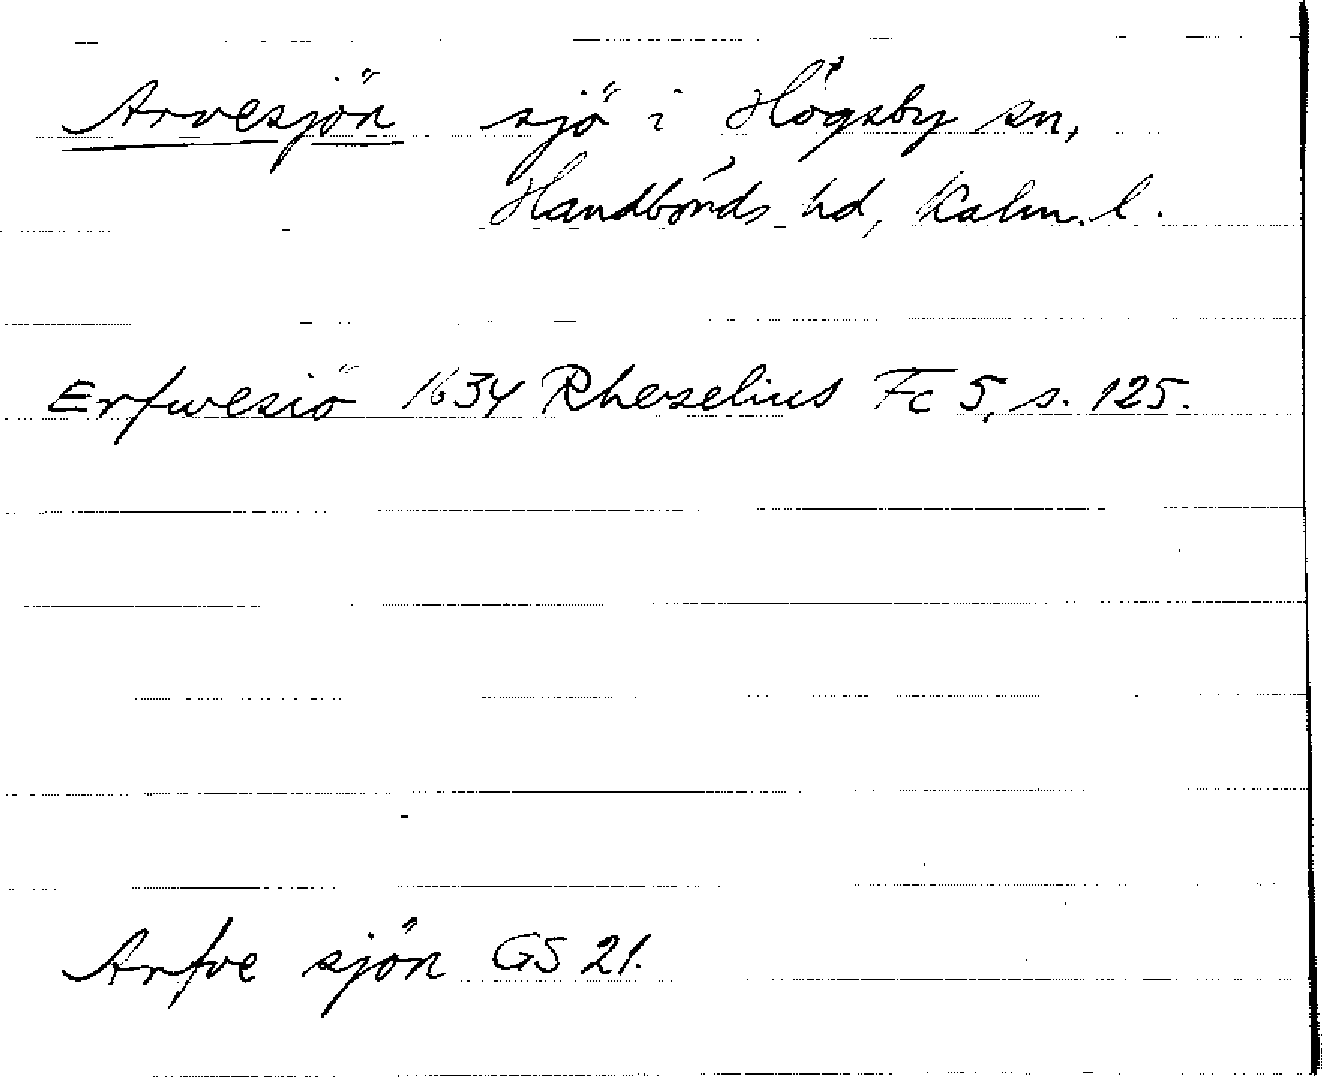 Arvesjön sjö i Högsby sn,
Handbörds hd, Kalm. l.
Erfwesiö 1634 Rhezelius Fc 5, s. 125.
Arfve sjön GS 21.